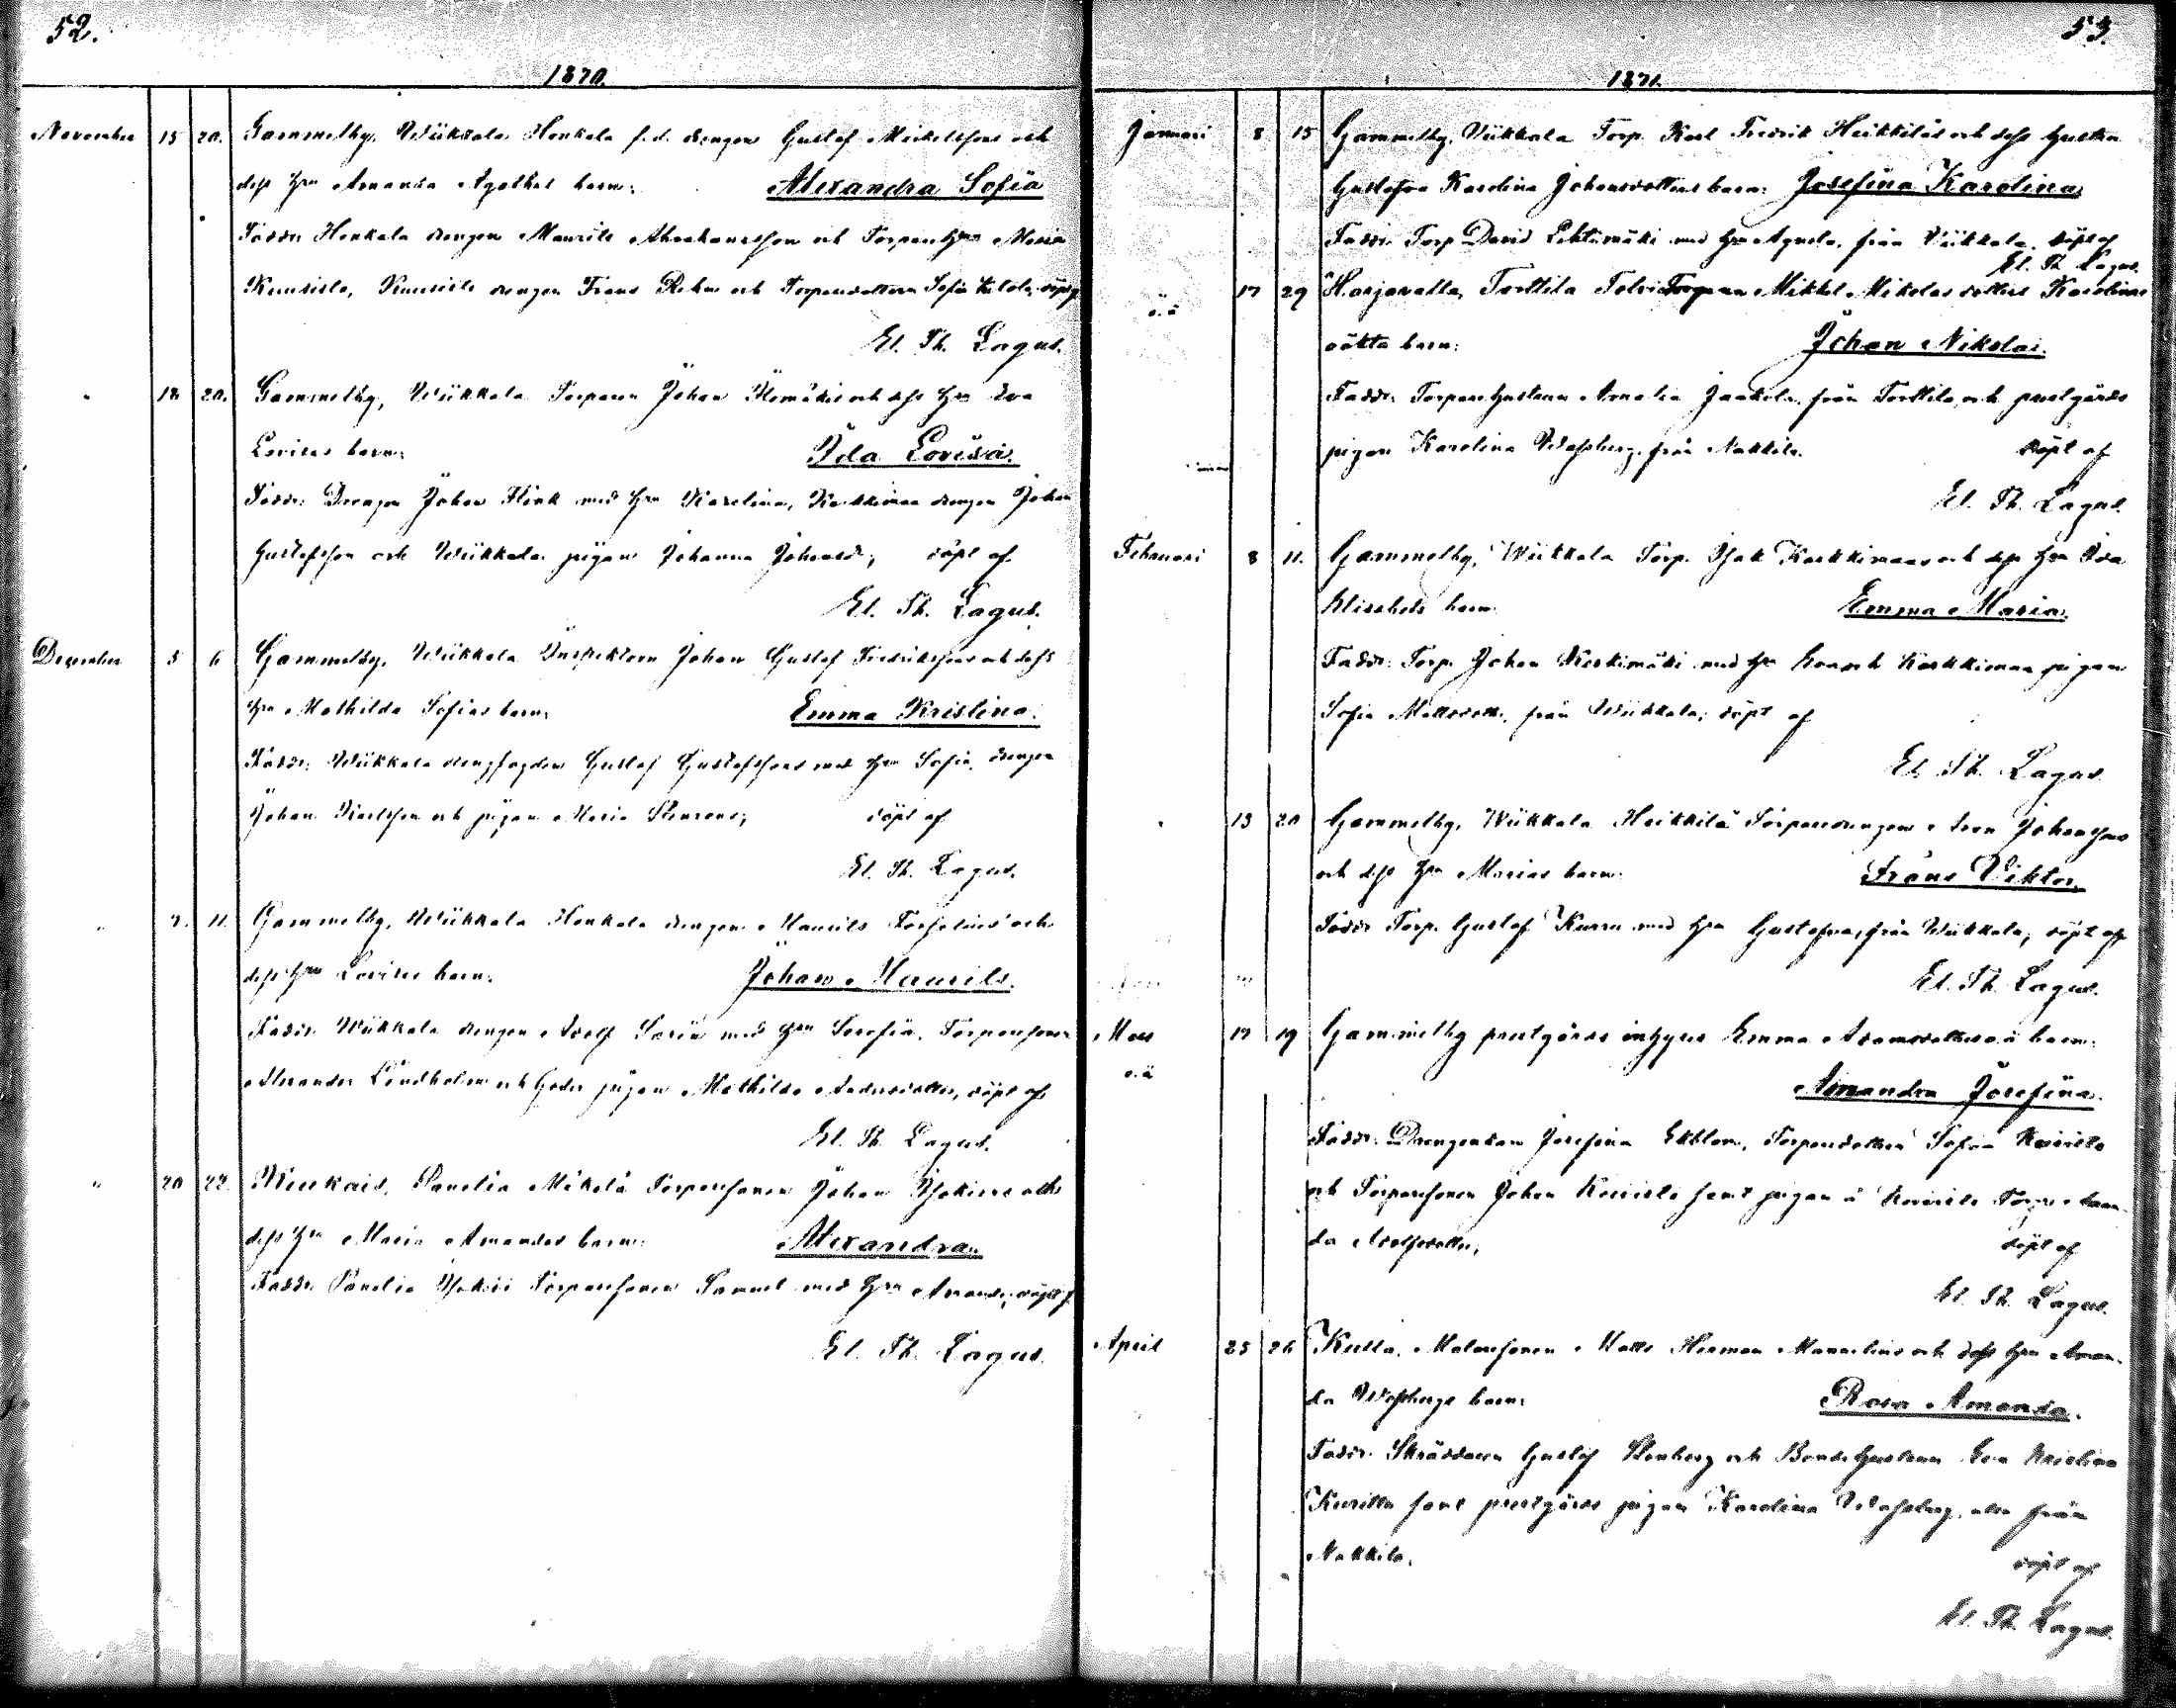 52.
1870.
November 15 20. Gammelby, Wiikkala Honkala f.d. drengen Gustaf Mickelssons och
dess Hru Amanda Agathas barn: Alexandra Sofia
Faddr: Honkala drengen Maurits Abrahamsson och Torpare Hru Maria
Kuusisto, Kuusisto drengen Frans och Torparedottern Sofia döpt af
El. Th. Lagus.
" 18 20. Gammelby, Wiikkala Torparen Johan och dess Hru Eva
Lovisas barn: Ida Lovisa.
Faddr: Drengen Johan Flink med Hru Karolina, Karkkimaa drengen Johan
Gustafsson och Wiikkala pigan Johanna Johansd:, döpt af
El. Th. Lagus.
December 5 6 Gammelby, Wiikkala Inspektorn Johan Gustaf Fredrikssons och dess
Hru Mathilda Sofias barn: Emma Kristina.
Faddr: Wiikkala drengfogden Gustaf Gustafsson med Hru Sofia, drengen
Johan Karlsson och pigan Maria Stenroos; döpt af
El. Th. Lagus.
" 7. 11. Gammelby, Wiikkala Honkala drengen Maurits och
dess Hru Lovisas barn: Johan Maurits.
Faddr: Wiikkala drengen Adolf med Hru Serafia, Torparesonen
Alexander Lindholm och pigan Mathilda Andersdotter, döpt af
El. Th. Lagus.
" 20 22. Kiukais, Panelia Mäkelä Torparesonen Johan och
dess Hru Maria Amandas barn: Alexandra.
Faddr: Panelia Torparesonen Samuel med Hru Amanda, döpt af
El. Th. Lagus.
53.
1871.
Januari 8 15 Gammelby, Wiikkala Torp. Karl Fredrik Heikkiläs och dess hustru
Gustafva Karolina Johansdotters barn: Josefina Karolina
Faddr: Torp David Lehtimäki med Hru Agneta, från Wiikkala. döpt af
El. Th. Lagus.
o.ä 17 29 Harjavalta, Torttila Torparen Mikkel Mikolas dotters Karolinas
oäkta barn: Johan Nikolai.
Faddr: Torpare hustrun Amalia Jaakola, från Torttila, och prestgårds
pigan Karolina Wassberg, från Nakkila. döpt af
El. Th. Lagus.
Februari 8 11. Gammelby, Wiikkala Torp. Isak Karkkimaas och dess Hru Eva
Elisabets barn: Emma Maria.
Faddr: Torp. Johan Keskimäki med Hru Eva och Karkkimaa pigan
Sofia Mattsdott., från Wiikkala; döpt af
El. Th. Lagus.
" 13 20 Gammelby, Wiikkala Heikkilä Torparedrengen Johanssons
och dess Hru Marias barn: Frans Viktor.
Faddr: Torp. Gustaf Kurru med Hru Gustafva, från Wiikkala; döpt af
El. Th. Lagus.
Mars o.ä 17 19 Gammelby prestgårds inhyses Emma Adamsdotters o.ä barn:
Amanda Josefina.
Faddr: Drengenkan Josefina Ekblom, Torparedottren Sofia Koivisto
och Torparesonen Johan Koivisto samt pigan å Koivisto Torp Aman-
da Adolfsdotter; döpt af
El. Th. Lagus.
April 25 26 Kulla, Målaresonen Matts Herman Mannelins och dess Hru Aman-
da Wassbergs barn: Rosa Amanda.
Faddr: Skräddaren Gustaf Stenberg och Bondehustrun Eva Kristina
Kurittu samt prestgårds pigan Karolina Wassberg, alla från
Nakkila, döpt af
El. Th. Lagus.